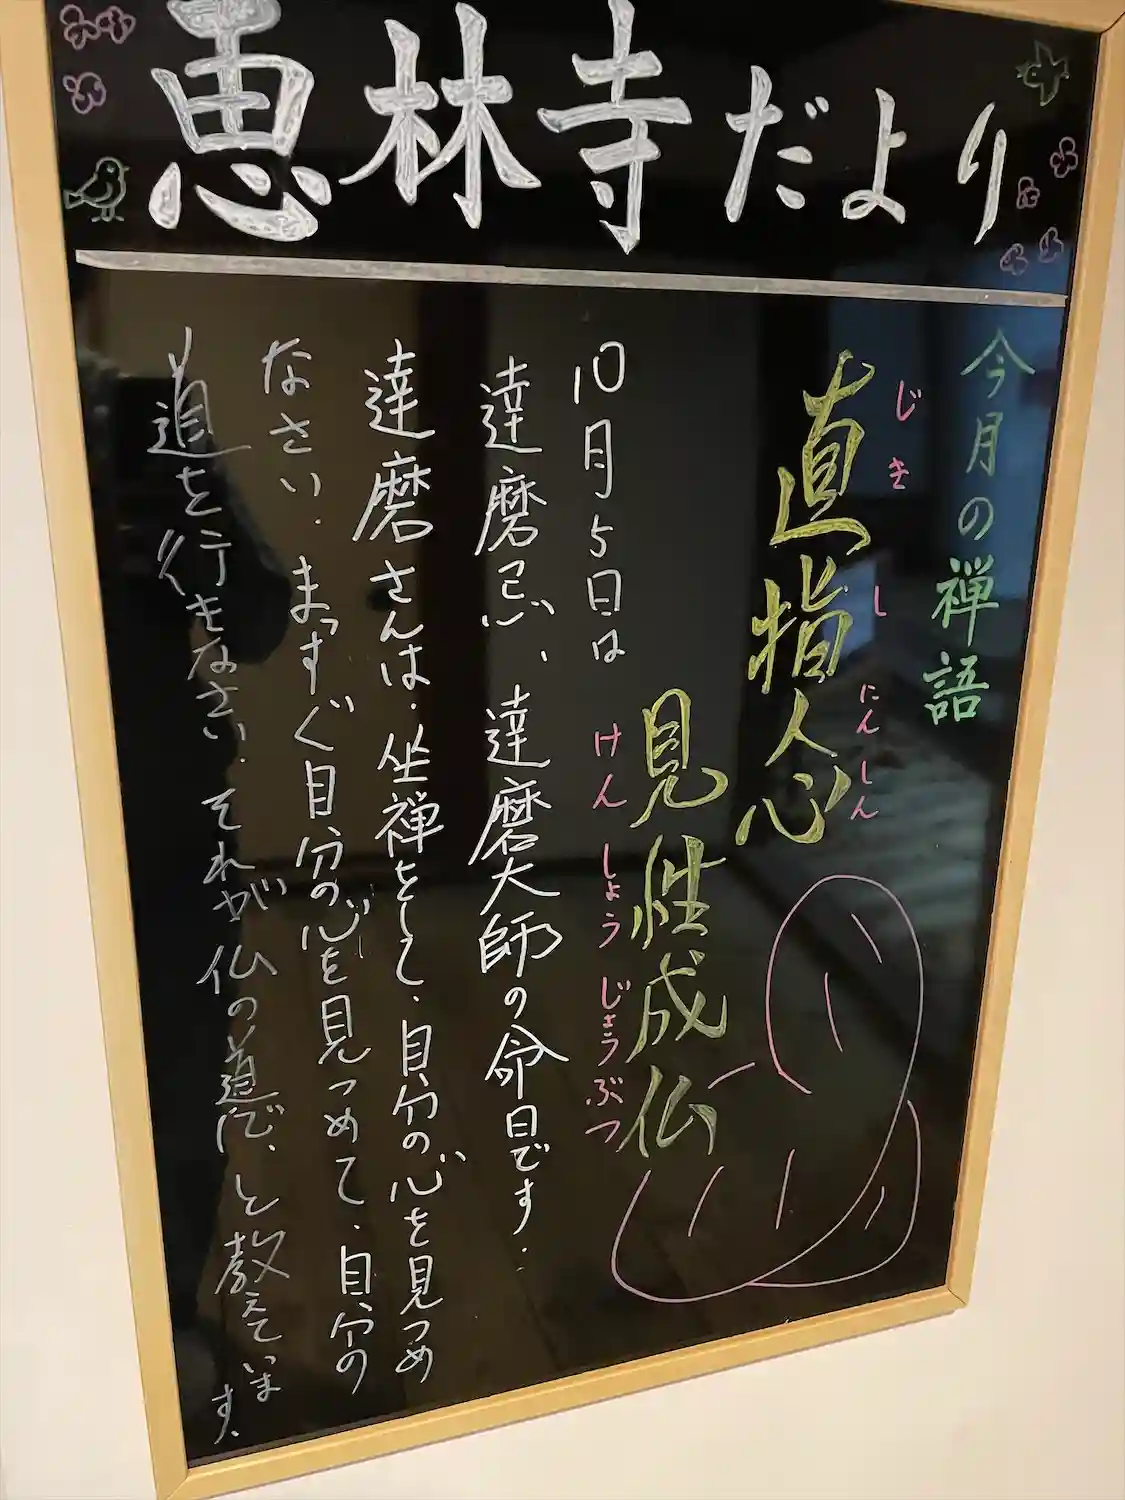 恵林寺だより
今月の禅語
じき し にんしん
直指人心
見性成仏
けん しょう じょうぶつ
10月5日は
達磨忌、達磨大師の命日です.
達磨さんは、坐禅をして、自分の心を見つめ
なさい. まっすぐ自分の心を見つめて、自分の
道を行きなさい. それが仏の道だ、と教えていま
す.